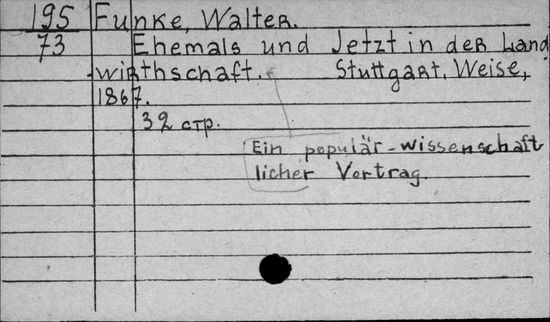 195 Funke, Walter.
73 Ehemals und Jetzt in der Land
-wirthschaft. Stuttgart, Weise,
1867.
32 стр.
Ein populär-wissenschaft
licher Vortrag.